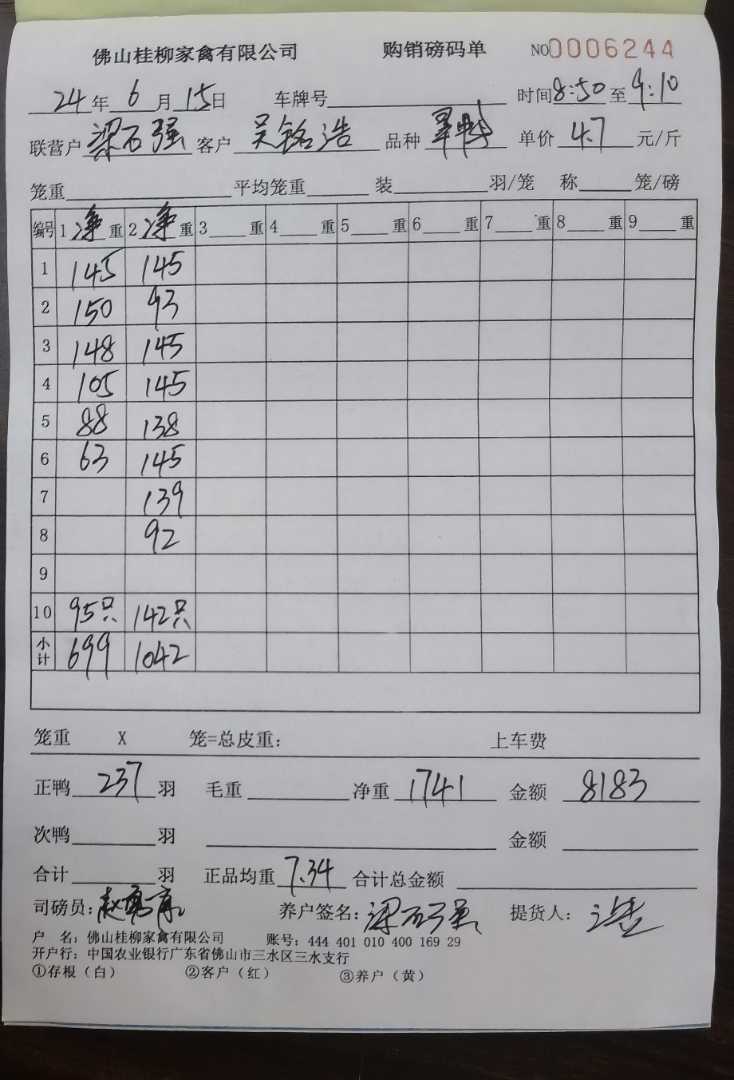 佛山桂柳家禽有限公司 购销磅码单 NO0006244
24年6月15日 车牌号 时间8:50至9:10
联营户梁石强 客户吴铭浩 品种 单价4.7元/斤
笼重 平均笼重 装 羽/笼 称 笼/磅
编号 1净重 2净重 3 重 4 重 5 重 6 重 7 重 8 重 9 重
1 145 145
2 150 93
3 148 145
4 105 145
5 88 138
6 63 145
7 139
8 92
9
10 95只 142只
小计 699 1042
笼重 X 笼=总皮重: 上车费
正鸭 237 羽 毛重 净重 1741 金额 8183
次鸭 羽 金额
合计 羽 正品均重 7.34 合计总金额
司磅员: 养户签名:梁石强 提货人:
户 名:佛山桂柳家禽有限公司 账号:444 401 010 400 169 29
开户行:中国农业银行广东省佛山市三水区三水支行
①存根(白) ②客户(红) ③养户(黄)